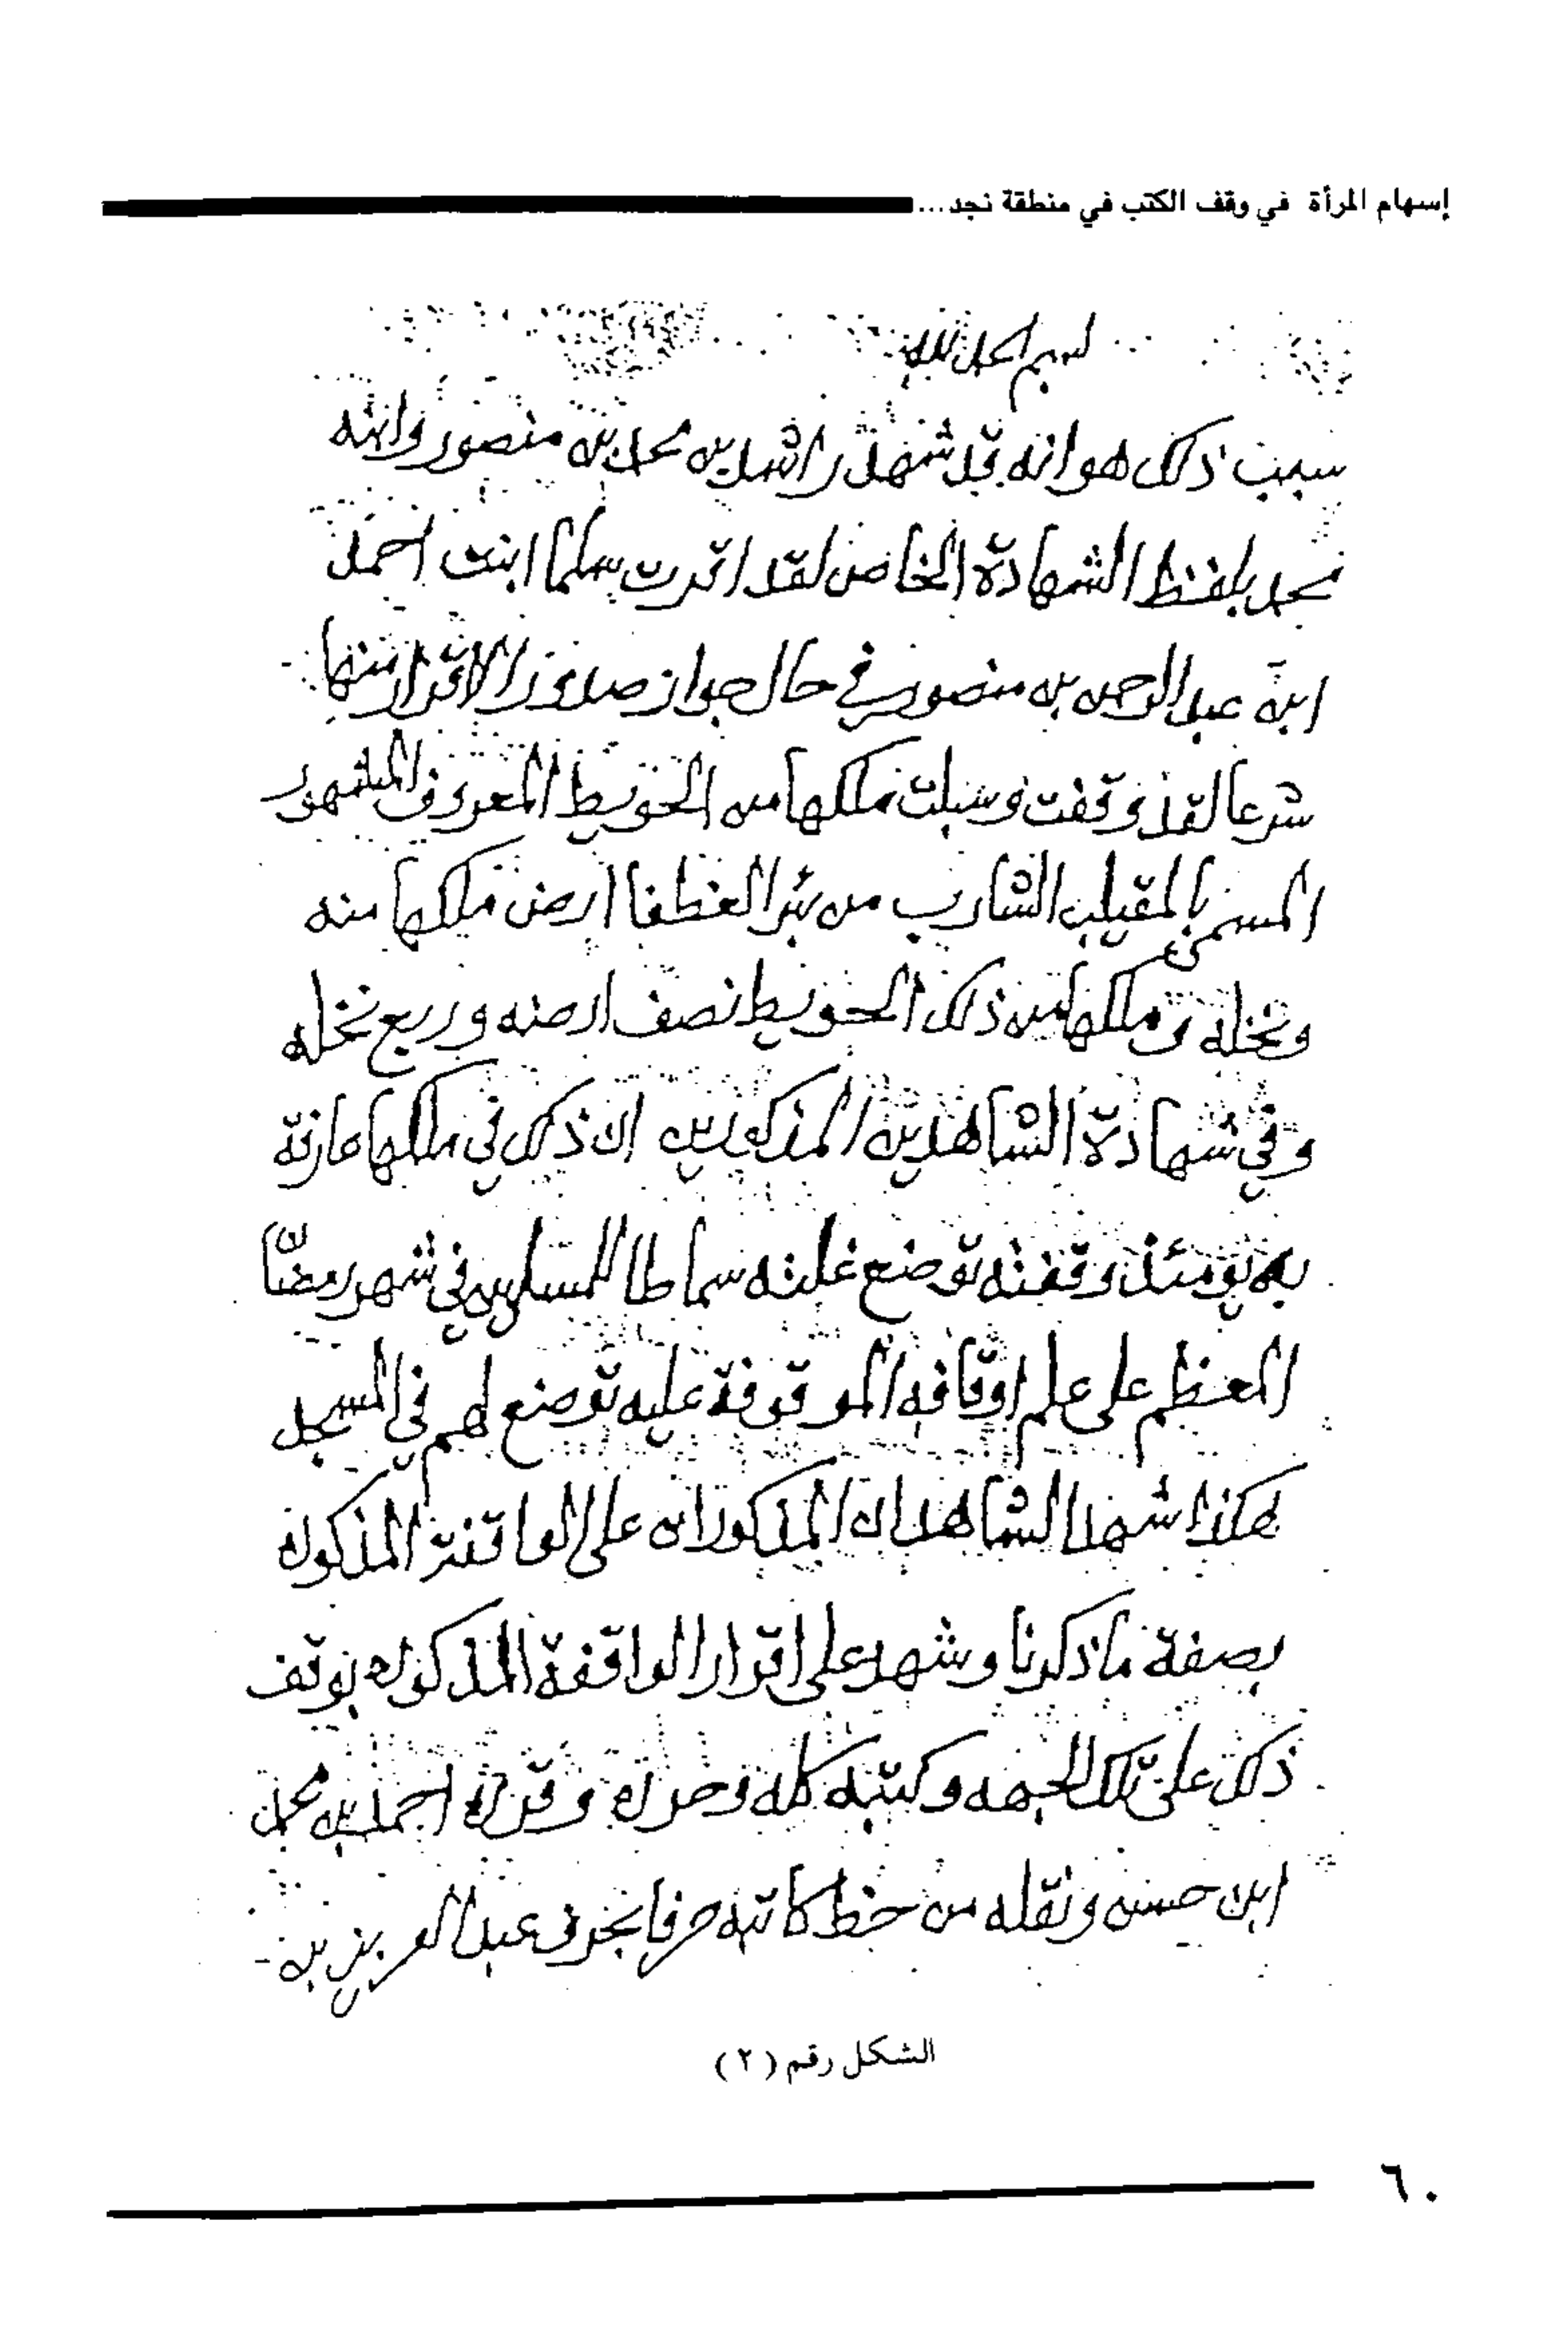 إسهام المرأة في وقف الكتب في منطقة نجد...
الحمد لله
سبب ذلك هو انه قد شهد راشد بن محمد بن منصور وابنه
محمد بلفظ الشهادة الخاص لقد اقرت سلما ابنت احمد
ابنة عبد الرحمن بن منصور في حال جواز صدور الاقرار منها
شرعا لقد وقفت وسبلت ملكها من الحويط المعروف المشهور
المسمى بالمقيلب الشارب من بئر الغطفا ارض ملكها منه
ونخله وملكها من ذلك الحويط نصف ارضه وربع نخله
وفي شهادة الشاهدين المذكورين ان ذلك في ملكها عارفة
به يومئذ وقفته توضع غلته سماطا للمسلمين في شهر رمضان
المعظم على علم اوقافه الموقوفة عليه توضع لهم في المسجد
هكذا شهد الشاهدان المذكوران على الواقفة المذكوره
بصفة ما ذكرنا وشهد على اقرار الواقفة المذكوره بوقف
ذلك على تلك الجهه وكتبه كله وحرره وقرره احمد بن محمد
ابن حسن ونقله من خط كاتبه حرفا بحرف عبد العزيز بن
الشكل رقم (٢)
٦٠